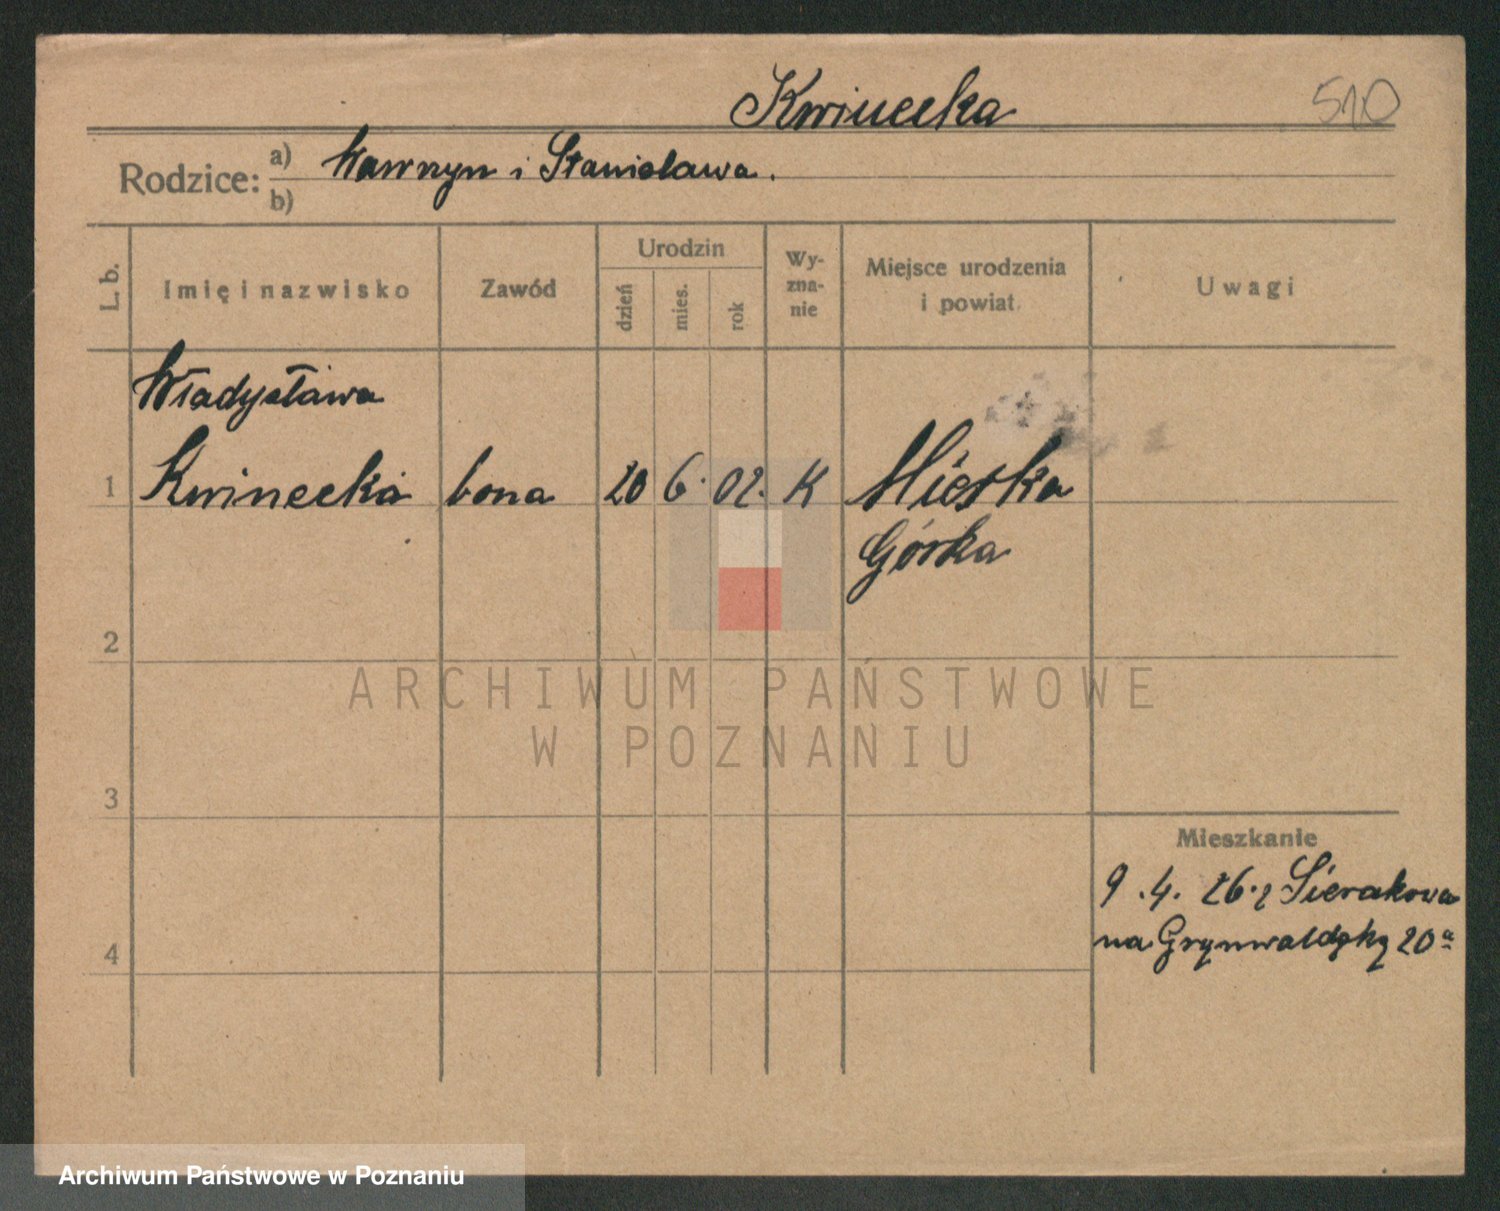 Kwinecka
510
Rodzice: a) Wawrzyn i Stanisława.
b)
L. b.
Imię i nazwisko
Zawód
Urodzin
dzień
mies.
rok
Wy-
zna-
nie
Miejsce urodzenia
i powiat
Uwagi
Władysława
1 Kwinecka bona 20 6. 02. K Miejska
Górka
2
3
4
Mieszkanie
9.4. 26. z Sierakowa
na Grunwaldzką 20a
ARCHIWUM PAŃSTWOWE
W POZNANIU
Archiwum Państwowe w Poznaniu